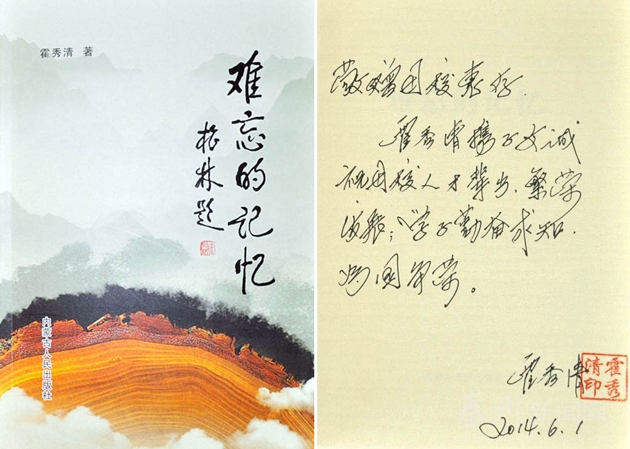 霍秀清 著
难忘的记忆
林题
内蒙古人民出版社
敬赠母校惠存.
霍秀清携子女诚
祝母校人才辈出、繁荣
发展；学子勤奋求知.
为国争荣。
霍秀清
霍秀清印
2014.6.1